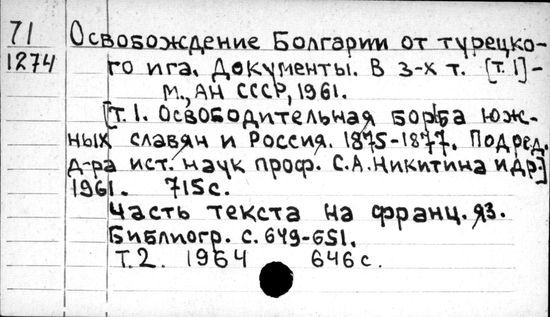 71 Освобождение Болгарии от турецко-
1274 го ига. Документы. В 3-х т. [т.1]-
М., АН СССР, 1961.
[т.1. Освободительная борьба юж-
ных славян и Россия. 1875-1877. Под ред.
д-ра ист. наук проф. С.А.Никитина и др.]
1961. 715с.
Часть текста на франц. яз.
Библиогр. с. 649-651.
Т.2. 1964 646с.